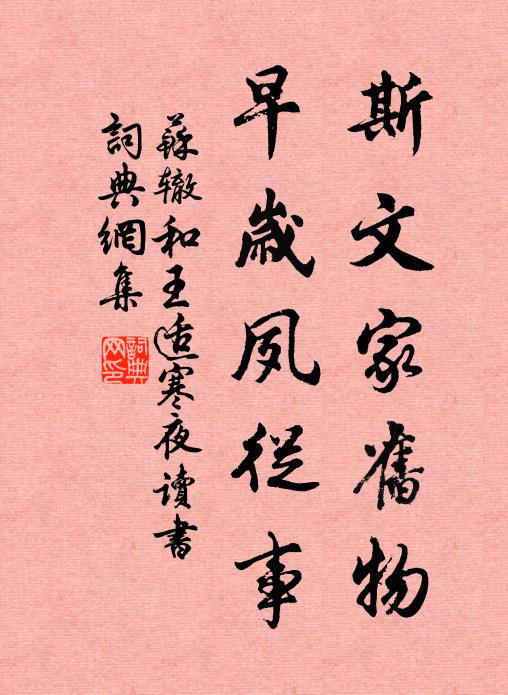 斯文家舊物
早歲夙從事
蘇轍和王适寒夜讀書
詞典網集
詞典網印